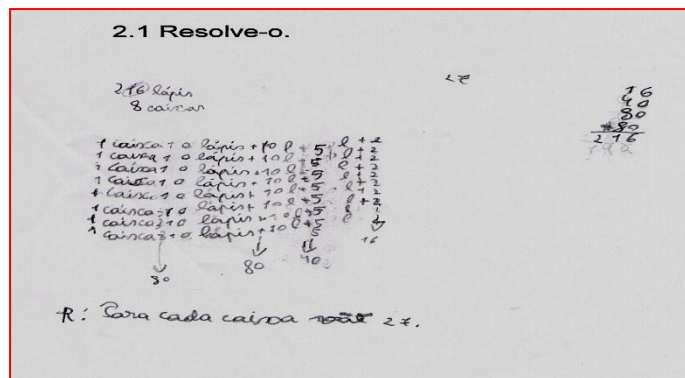 2.1 Resolve-o.
27
216 lápis
8 caixas
16
40
80
+80
216
1 caixa 10 lápis + 10 l + 5 l + 2
1 caixa 10 lápis + 10 l + 5 l + 2
1 caixa 10 lápis + 10 l + 5 l + 2
1 caixa 10 lápis + 10 l + 5 l + 2
1 caixa 10 lápis + 10 l + 5 l + 2
1 caixa 10 lápis + 10 l + 5 l + 2
1 caixa 10 lápis + 10 l + 5 l
1 caixa 10 lápis + 10 l + 5
80 80 40 16
R: Para cada caixa 27.